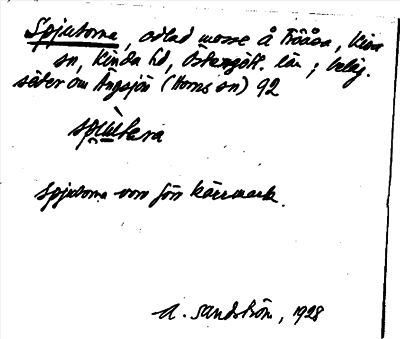 Spjutorna, odlad mosse å Tröåsa, Kisa
sn, Kinda hd, Östergötl. län; beläg.
söder om Ängsjön (Horns sn) 92
spjutorna voro förr kärrmark.
A. Sandström, 1928